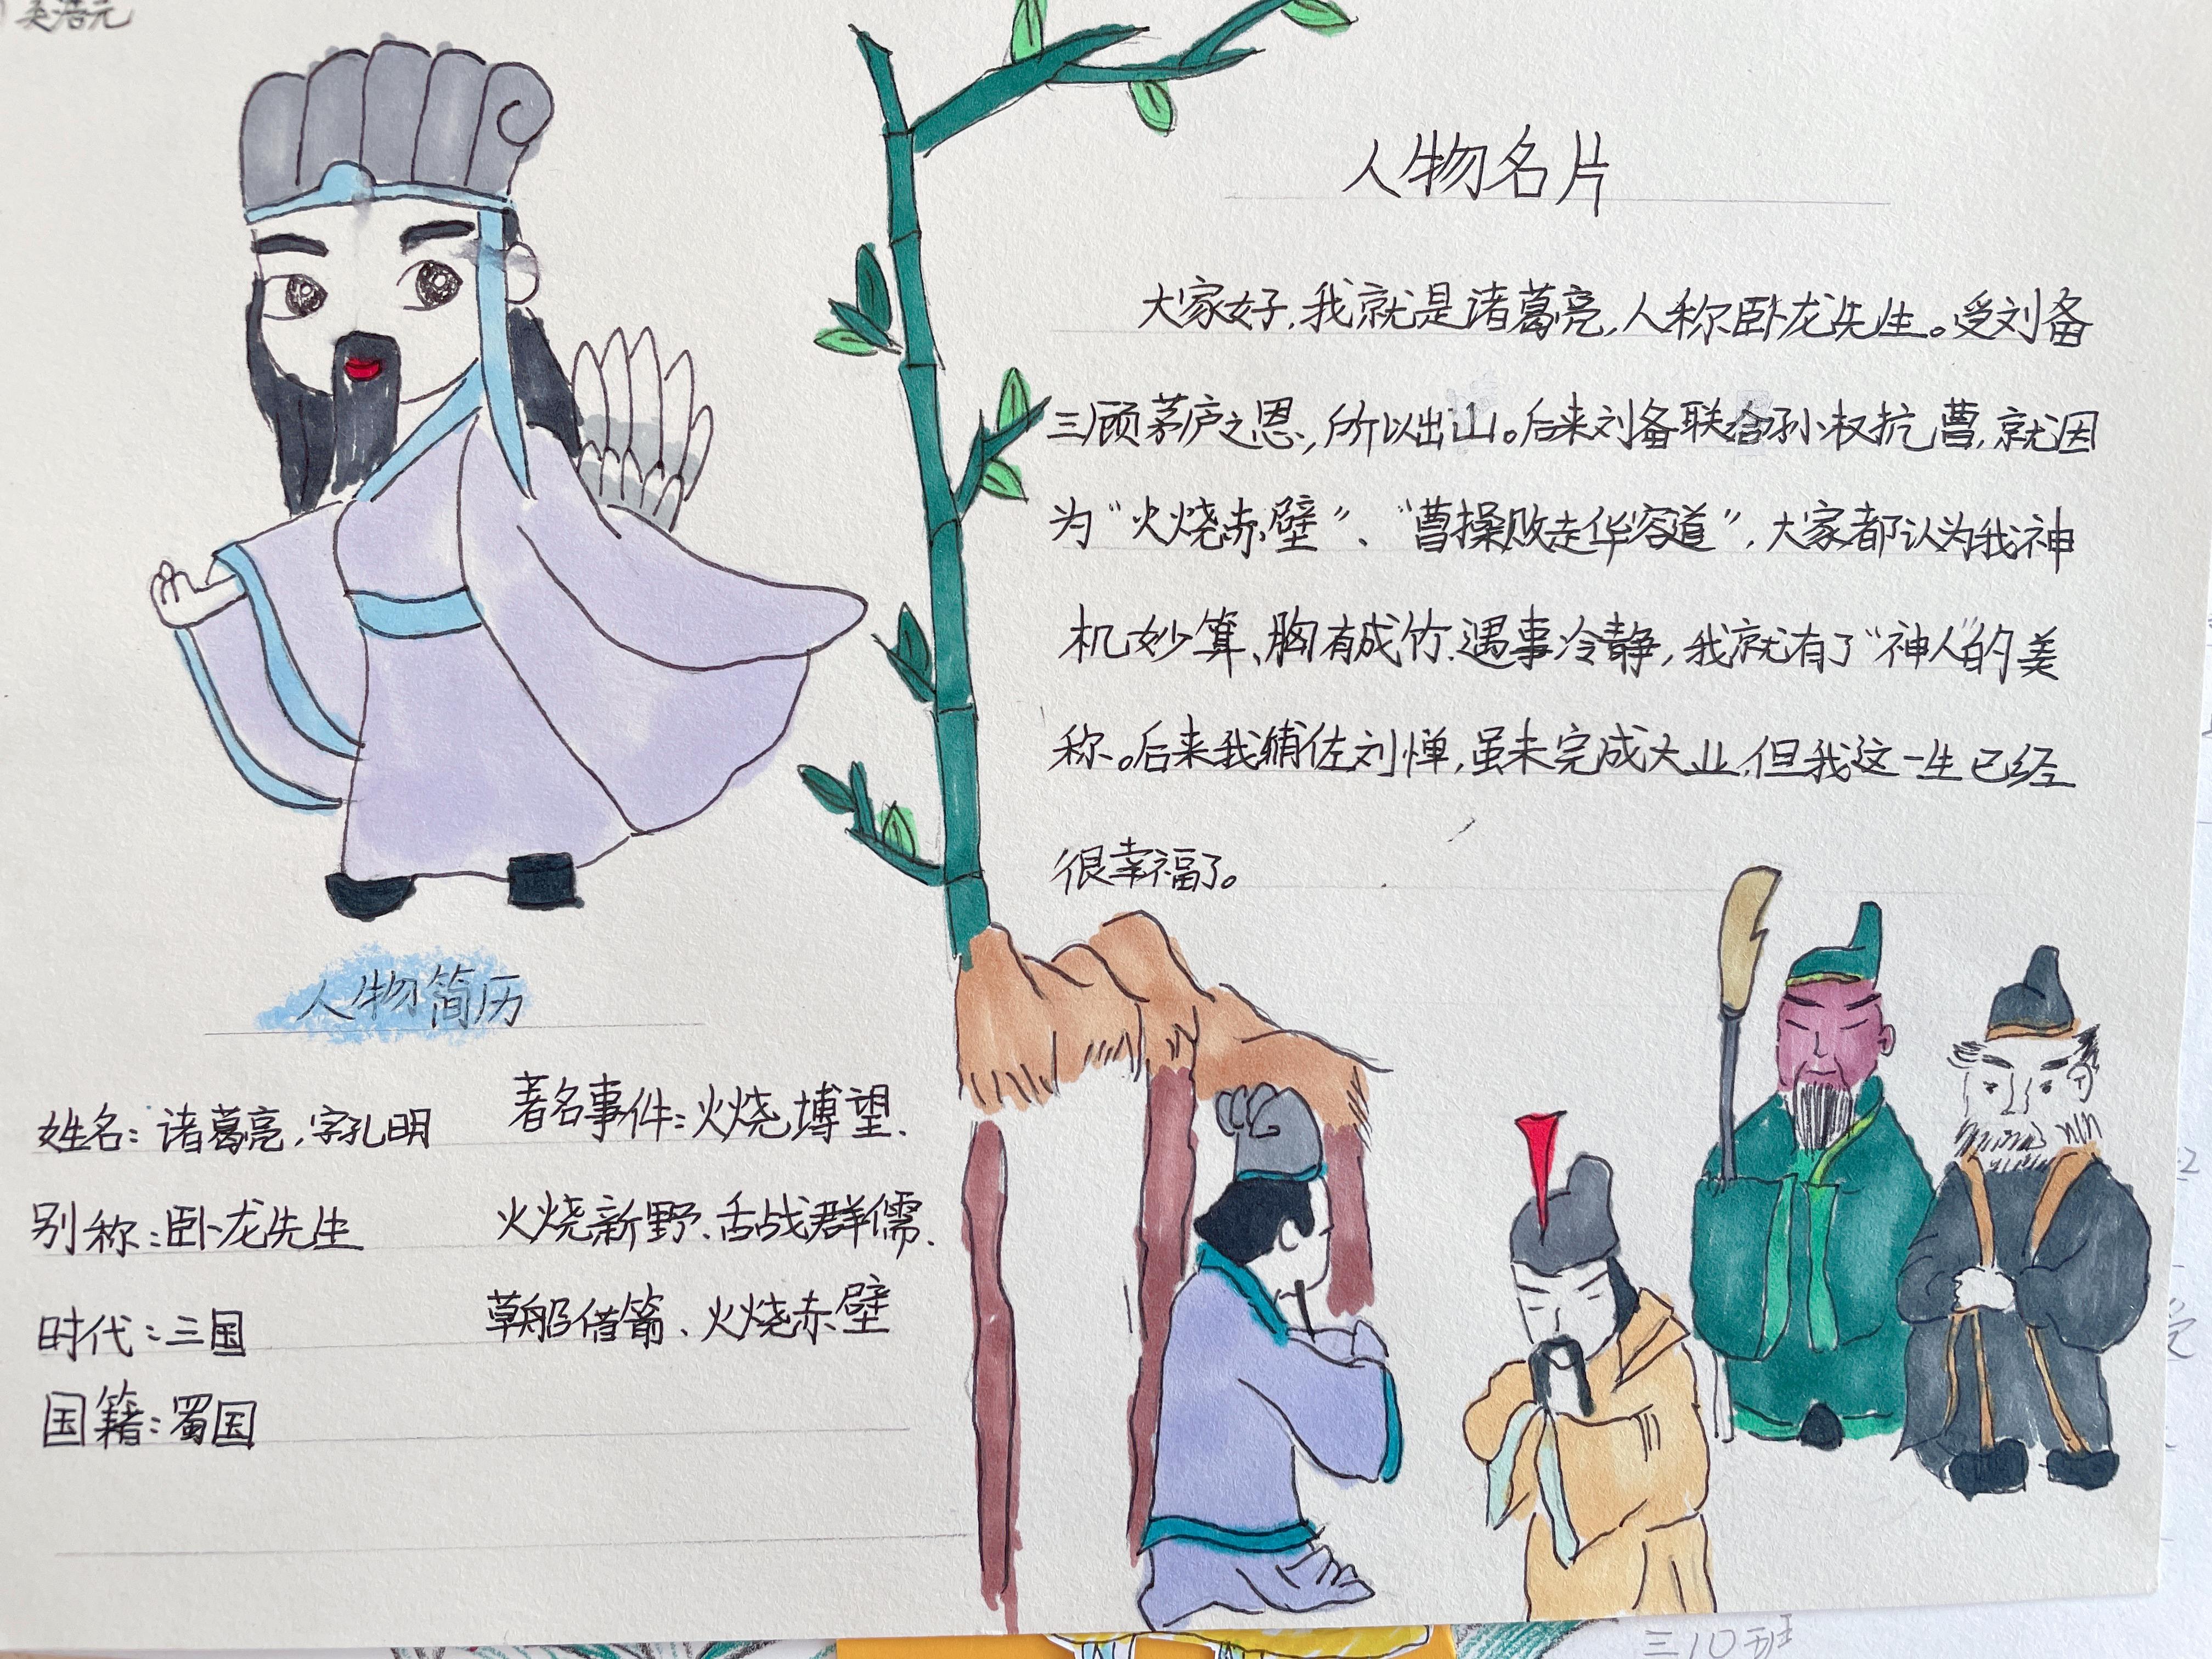 吴浩元
人物名片
大家好,我就是诸葛亮,人称卧龙先生。受刘备
三顾茅庐之恩,所以出山。后来刘备联合孙权抗曹,就因
为“火烧赤壁”、“曹操败走华容道”,大家都认为我神
机妙算、胸有成竹、遇事冷静,我就有了“神人”的美
称。后来我辅佐刘惮,虽未完成大业,但我这一生已经
很幸福了。
人物简历
姓名:诸葛亮,字孔明
别称:卧龙先生
时代:三国
国籍:蜀国
著名事件:火烧博望、
火烧新野、舌战群儒、
草船借箭、火烧赤壁
三10班